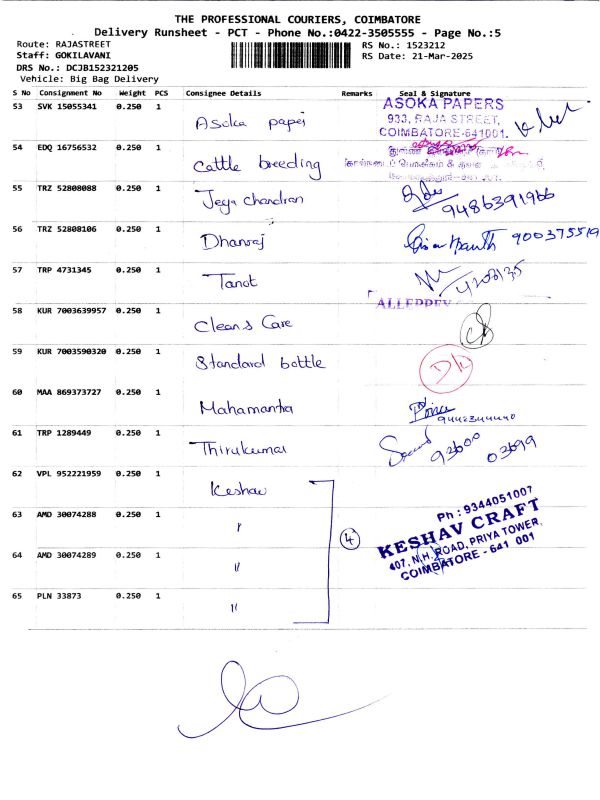 THE PROFESSIONAL COURIERS, COIMBATORE
Delivery Runsheet - PCT - Phone No.:0422-3505555 - Page No.:5
Route: RAJASTREET
Staff: GOKILAVANI
DRS No.: DCJB152321205
Vehicle: Big Bag Delivery
RS No.: 1523212
RS Date: 21-Mar-2025
S No Consignment No Weight PCS Consignee Details Remarks Seal & Signature
53 SVK 15055341 0.250 1 Asoka paper
ASOKA PAPERS
933, RAJA STREET,
COIMBATORE-641001.
54 EDQ 16756532 0.250 1 Cattle breeding
55 TRZ 52808088 0.250 1 Jeya chandran 9486391966
56 TRZ 52808106 0.250 1 Dhanraj 900375519
57 TRP 4731345 0.250 1 Tanot
ALLEPPEY
58 KUR 7003639957 0.250 1 Clean & Care
59 KUR 7003590320 0.250 1 Standard bottle
60 MAA 869373727 0.250 1 Mahamantra
61 TRP 1289449 0.250 1 Thirukumar 93600 03699
62 VPL 952221959 0.250 1 Keshav
63 AMD 30074288 0.250 1 "
64 AMD 30074289 0.250 1 "
65 PLN 33873 0.250 1 "
4
Ph : 9344051007
KESHAV CRAFT
407, N.H. ROAD, PRIYA TOWER,
COIMBATORE - 641 001